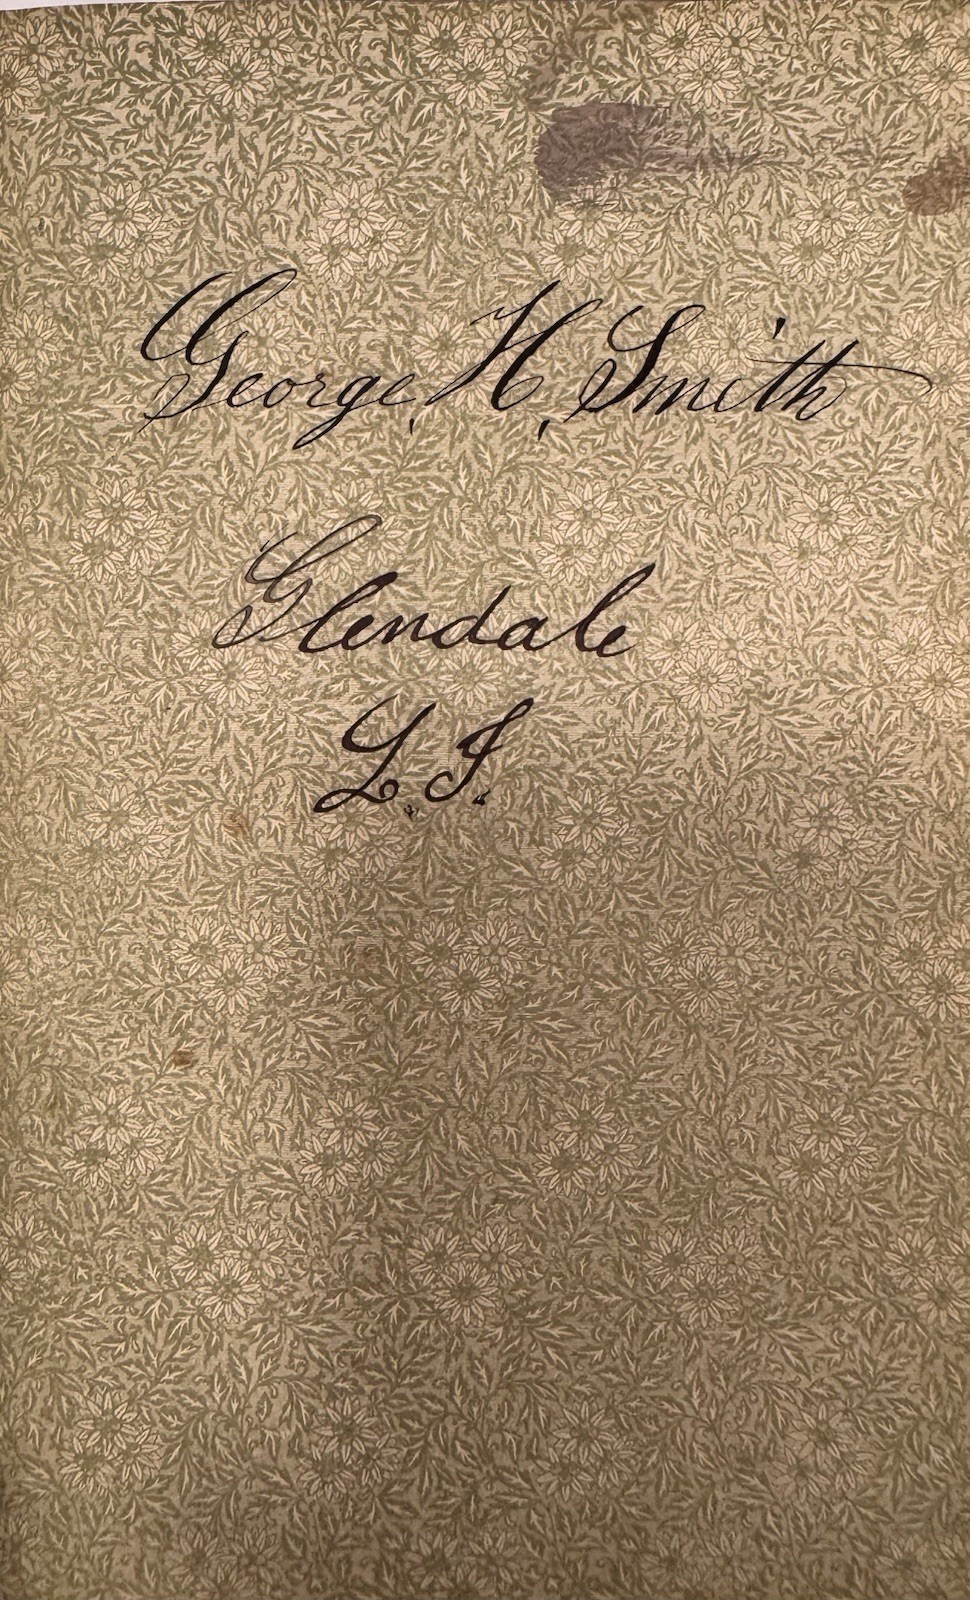 George, H, Smith
Glendale
L. I.